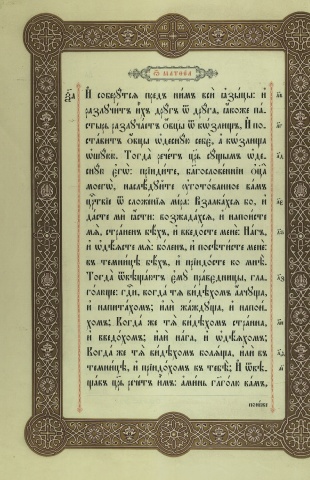 Ѿ матѳеа
И҆ соберꙋтсѧ пред̾ ни́мъ всѝ ꙗ҆зы́цы: и҆
разлꙋчи́тъ и҆́хъ дрꙋ́гъ ѿ дрꙋ́га, ꙗ҆́коже па́-
стырь разлꙋча́етъ ѻ҆́вцы ѿ ко́злищъ. И҆ по-
ста́витъ ѻ҆́вцы ѡ҆деснꙋ́ю себє̀, а҆ ко́злища
ѡ҆шꙋ́юю. Тогда̀ рече́тъ цр҃ь сꙋ́щымъ ѡ҆де-
снꙋ́ю є҆гѡ̀: прїиди́те, благослове́ннїи ѻ҆ц҃а̀
моегѡ̀, наслѣ́дꙋйте ᲂу҆гото́ванное ва́мъ
црⷭ҇твїе ѿ сложе́нїѧ мі́ра: Взалка́хсѧ бо, и҆
да́сте мѝ ꙗ҆́сти: возжада́хсѧ, и҆ напои́сте
мѧ̀, стра́ненъ бѣ́хъ, и҆ введо́сте менѐ: На́гъ,
и҆ ѡ҆дѣ́ѧсте мѧ̀: бо́ленъ, и҆ посѣти́сте менѐ:
въ темни́цѣ бѣ́хъ, и҆ прїидо́сте ко мнѣ̀.
Тогда̀ ѿвѣща́ютъ є҆мꙋ̀ пра́ведницы, гла-
го́люще: гдⷭ҇и, когда̀ тѧ̀ ви́дѣхомъ а҆́лчꙋща,
и҆ напита́хомъ; и҆лѝ жа́ждꙋща, и҆ напои́-
хомъ; Когда́ же тѧ̀ ви́дѣхомъ стра́нна,
и҆ введо́хомъ; и҆лѝ на́га, и҆ ѡ҆дѣ́ѧхомъ;
Когда́ же тѧ̀ ви́дѣхомъ болѧ́ща, и҆лѝ въ
темни́цѣ, и҆ прїидо́хомъ къ тебѣ̀; И҆ ѿвѣ-
ща́въ цр҃ь рече́тъ и҆̀мъ: а҆ми́нь гл҃го́лю ва́мъ,
поне́же